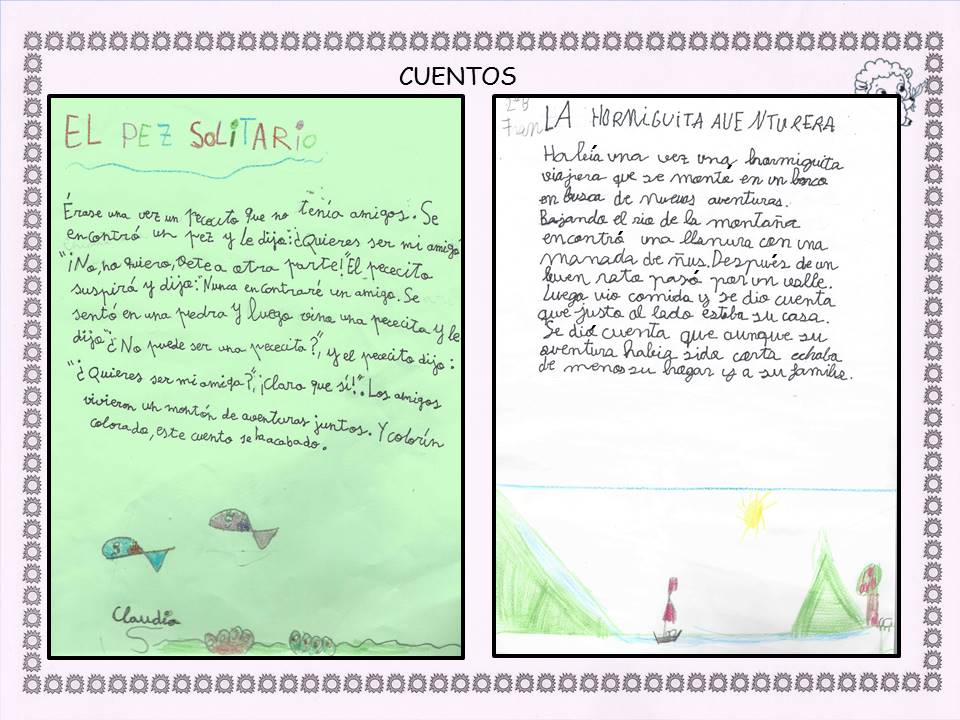 CUENTOS
EL PEZ SOLITARIO
Érase una vez un pececito que no tenía amigos. Se
encontró un pez y le dijo:"¿Quieres ser mi amigo
"¡No, no quiero, vete a otra parte!" El pececito
suspiró y dijo:"Nunca encontraré un amigo. Se
sentó en una piedra y luego vino una pececita y le
dijo"¿No puede ser una pececita?", y el pececito dijo:
"¿Quieres ser mi amiga?", ¡Claro que sí!". Los amigos
vivieron un montón de aventuras juntos. Y colorín
colorado, este cuento se ha acabado.
Claudia
2ºB
Fran
LA HORMIGUITA AVENTURERA
Había una vez una hormiguita
viajera que se monto en un barco
en busca de nuevas aventuras.
Bajando el rio de la montaña
encontró una llanura con una
manada de ñus. Después de un
buen rato pasó por un valle.
Luego vio comida y se dio cuenta
que justo al lado estaba su casa.
Se dió cuenta que aunque su
aventura había sida corta echaba
de menos su hogar y a su familia.